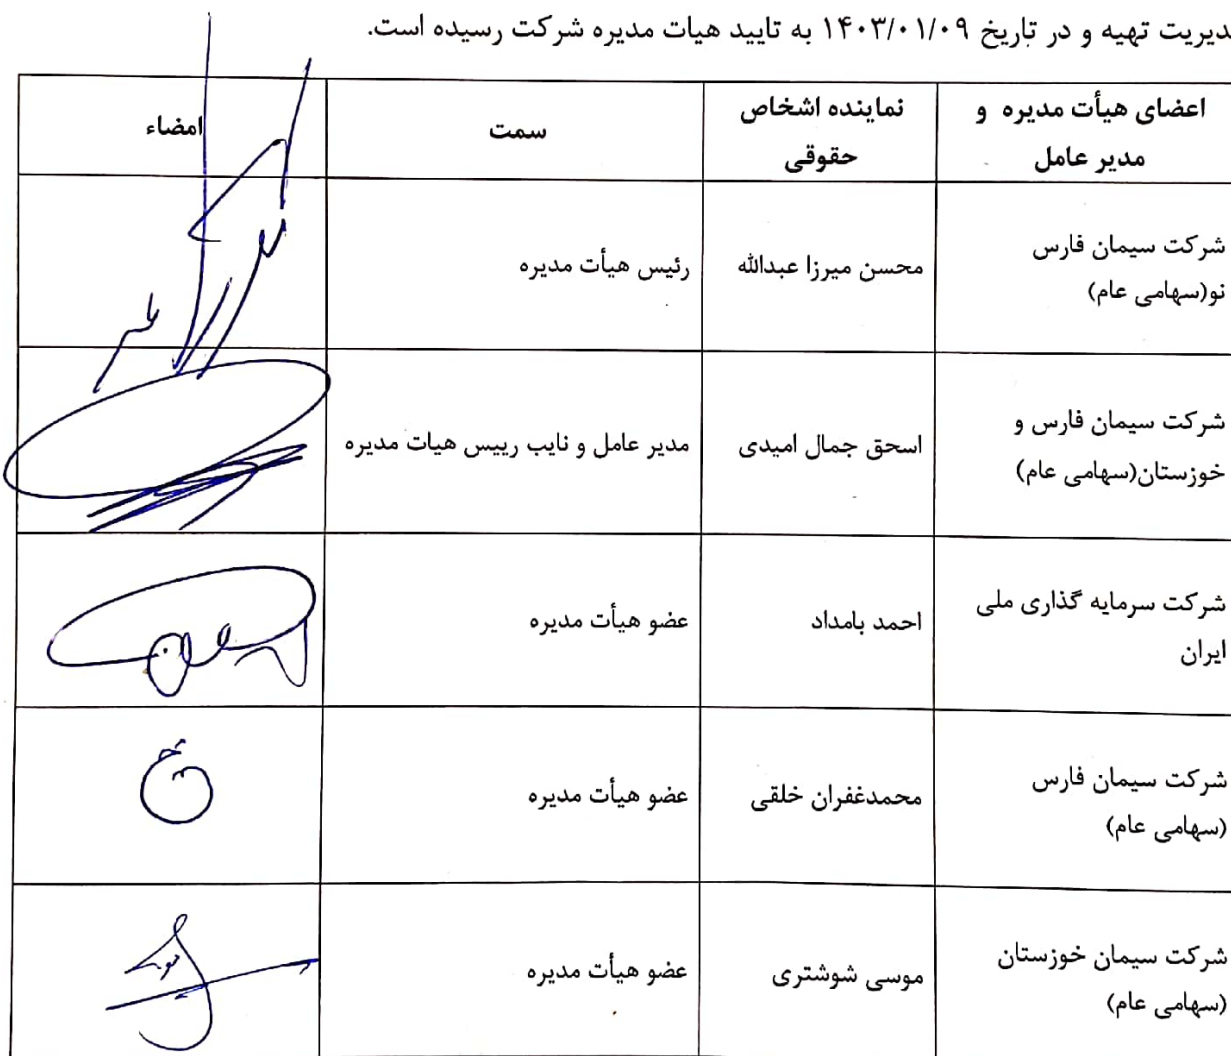 دیریت تهیه و در تاریخ ۱۴۰۳/۰۱/۰۹ به تایید هیات مدیره شرکت رسیده است.
اعضای هیأت مدیره و
مدیر عامل
نماینده اشخاص
حقوقی
سمت
امضاء
شرکت سیمان فارس
نو(سهامی عام)
محسن میرزا عبدالله
رئیس هیأت مدیره
شرکت سیمان فارس و
خوزستان(سهامی عام)
اسحق جمال امیدی
مدیر عامل و نایب رییس هیات مدیره
شرکت سرمایه گذاری ملی
ایران
احمد بامداد
عضو هیأت مدیره
شرکت سیمان فارس
(سهامی عام)
محمدغفران خلقی
عضو هیأت مدیره
شرکت سیمان خوزستان
(سهامی عام)
موسی شوشتری
عضو هیأت مدیره